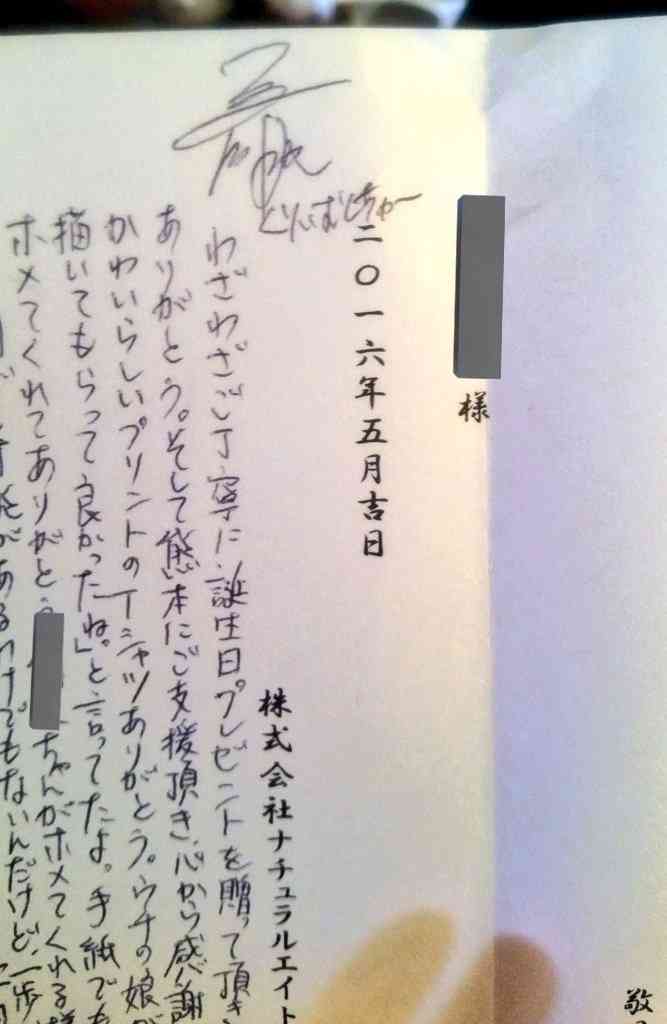 敬
様
二〇一六年五月吉日
株式会社ナチュラルエイト
とりいそぎ
わざわざご丁寧に誕生日プレゼントを贈って頂き
ありがとう。そして熊本にご支援頂き、心から感謝
かわいらしいプリントのTシャツありがとう。ウチの娘が
描いてもらって良かったね。」と言ってたよ。手紙でも
ホメてくれてありがとう ちゃんがホメてくれる様
があるわけでもないんだけど、一歩